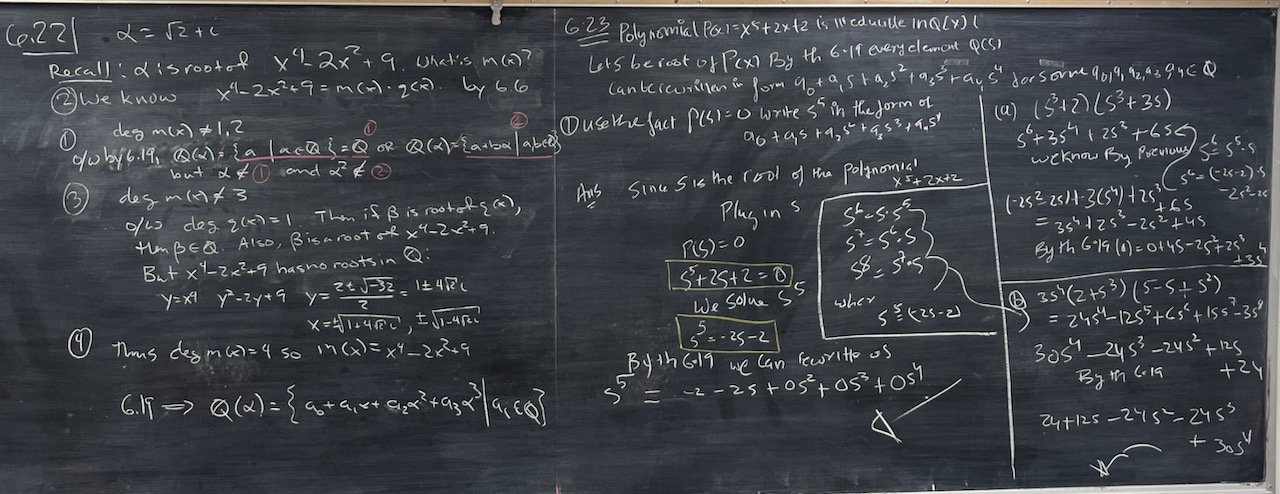 6.22 α = √2 + i
Recall: α is root of x⁴ - 2x² + 9. What is m(x)?
② We know x⁴-2x²+9 = m(x)·q(x). by 6.6
① deg m(x) ≠ 1,2
o/w by 6.19, Q(α) = {a | a∈Q} = Q or Q(α) = {a+bα | a,b∈Q}
① ②
but α ∉ ① and α² ∉ ②
③ deg m(x) ≠ 3
o/w deg q(x) = 1. Then if β is root of q(x),
then β∈Q. Also, β is a root of x⁴-2x²+9.
But x⁴-2x²+9 has no roots in Q:
y²-2y+9 y = (2±√-32)/2 = 1±4√2i
x = ±√1+4√2i, ±√1-4√2i
④ Thus deg m(x)=4 so m(x) = x⁴-2x²+9
6.19 ⟹ Q(α) = {a₀+a₁α+a₂α²+a₃α³ | aᵢ∈Q}
6.23 Polynomial P(x) = x⁵+2x+2 is irreducible in Q(x)
Let s be root of P(x) By th 6.19 every element Q(s)
can be rewritten in form a₀+a₁s+a₂s²+a₃s³+a₄s⁴ for some a₀,a₁,a₂,a₃,a₄∈Q
① use the fact P(s)=0 write s⁵ in the form of
a₀+a₁s+a₂s²+a₃s³+a₄s⁴
Ans Since s is the root of the polynomial
x⁵+2x+2
Plug in s
P(s)=0
s⁵+2s+2=0
We solve s⁵
s⁵=-2s-2
By th 6.19 we can rewrite as
s⁵ = -2-2s+0s²+0s³+0s⁴
s⁶=s·s⁵
s⁷=s⁶·s
s8=s⁷·s
wher
s⁵=(-2s-2)
(a) (s³+2)(s³+3s)
s⁶+3s⁴+2s³+6s
we know By Previous
s⁶=s⁵·s
s⁶=(-2s-2)·s
-2s²-2s
(-2s²-2s)+3(s⁴)+2s³
+6s
=3s⁴+2s³-2s²+4s
By th 6.19 (a)=0+4s-2s²+2s³
+3s⁴
(b) 3s⁴(2+s³)(5-s+s²)
30s⁴-24s³-24s²+12s
+24
By th 6.19
24+12s-24s²-24s³
+30s⁴